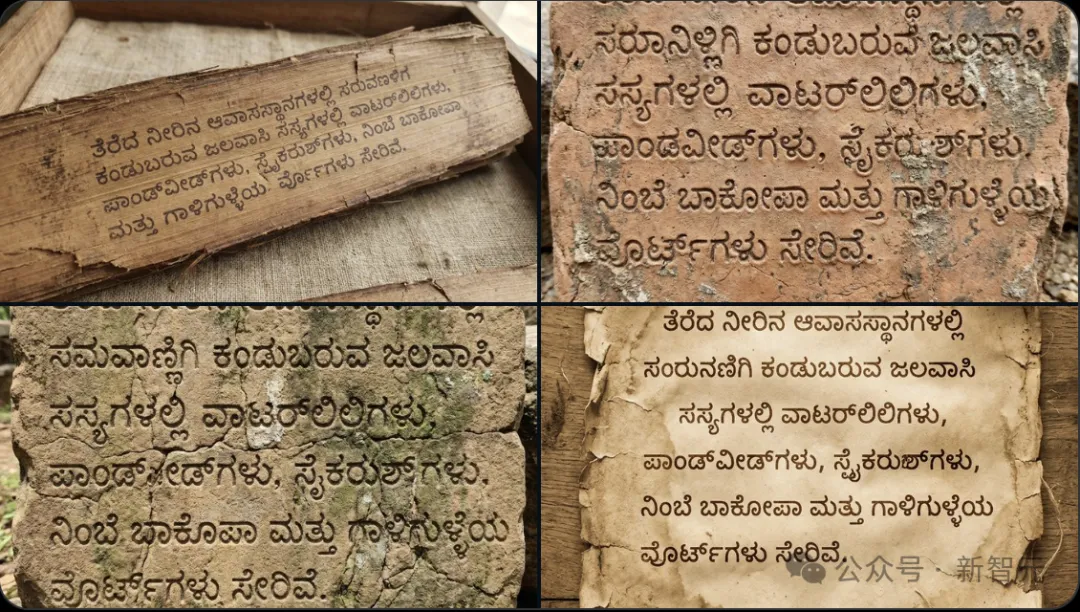 ತೆರೆದ ನೀರಿನ ಆವಾಸಸ್ಥಾನಗಳಲ್ಲಿ ಸರುವಣಳಿಗ
ಕಂಡುಬರುವ ಜಲವಾಸಿ ಸಸ್ಯಗಳಲ್ಲಿ ವಾಟರ್‌ಲಿಲಿಗಳು,
ಪಾಂಡ್‌ವೀಡ್‌ಗಳು, ಸ್ಪೈಕರುಶ್‌ಗಳು, ನಿಂಬೆ ಬಾಕೋಪಾ
ಮತ್ತು ಗಾಳಿಗುಳ್ಳೆಯ ರ್ವೊಗಳು ಸೇರಿವೆ.
ಕಂಡುಬರುವ ಜಲವಾಸಿ
ಸಸ್ಯಗಳಲ್ಲಿ ವಾಟರ್‌ಲಿಲಿಗಳು,
ಪಾಂಡವೀಡ್‌ಗಳು,
ನಿಂಬೆ ಬಾಕೋಪಾ ಮತ್ತು ಗಾಳಿಗುಳ್ಳೆಯ
ವೊರ್ಟ್‌ಗಳು ಸೇರಿವೆ.
ಸಮವಾಣ್ಣಿಗಿ ಕಂಡುಬರುವ ಜಲವಾಸಿ
ಸಸ್ಯಗಳಲ್ಲಿ ವಾಟರ್‌ಲಿಲಿಗಳು,
ಸೈಕರುಶ್‌ಗಳು,
ನಿಂಬೆ ಬಾಕೊಪಾ ಮತ್ತು ಗಾಳಿಗುಳ್ಳೆಯ
ವೊರ್ಟ್‌ಗಳು ಸೇರಿವೆ.
ತೆರೆದ ನೀರಿನ ಆವಾಸಸ್ಥಾನಗಳಲ್ಲಿ
ಸಂರುನಣಿಗಿ ಕಂಡುಬರುವ ಜಲವಾಸಿ
ಸಸ್ಯಗಳಲ್ಲಿ ವಾಟರ್‌ಲಿಲಿಗಳು,
ಪಾಂಡ್‌ವೀಡ್‌ಗಳು, ಸ್ಪೈಕರುಶ್‌ಗಳು,
ನಿಂಬೆ ಬಾಕೋಪಾ ಮತ್ತು ಗಾಳಿಗುಳ್ಳೆಯ
ವೊರ್ಟ್‌ಗಳು ಸೇರಿವೆ.
公众号·新智元